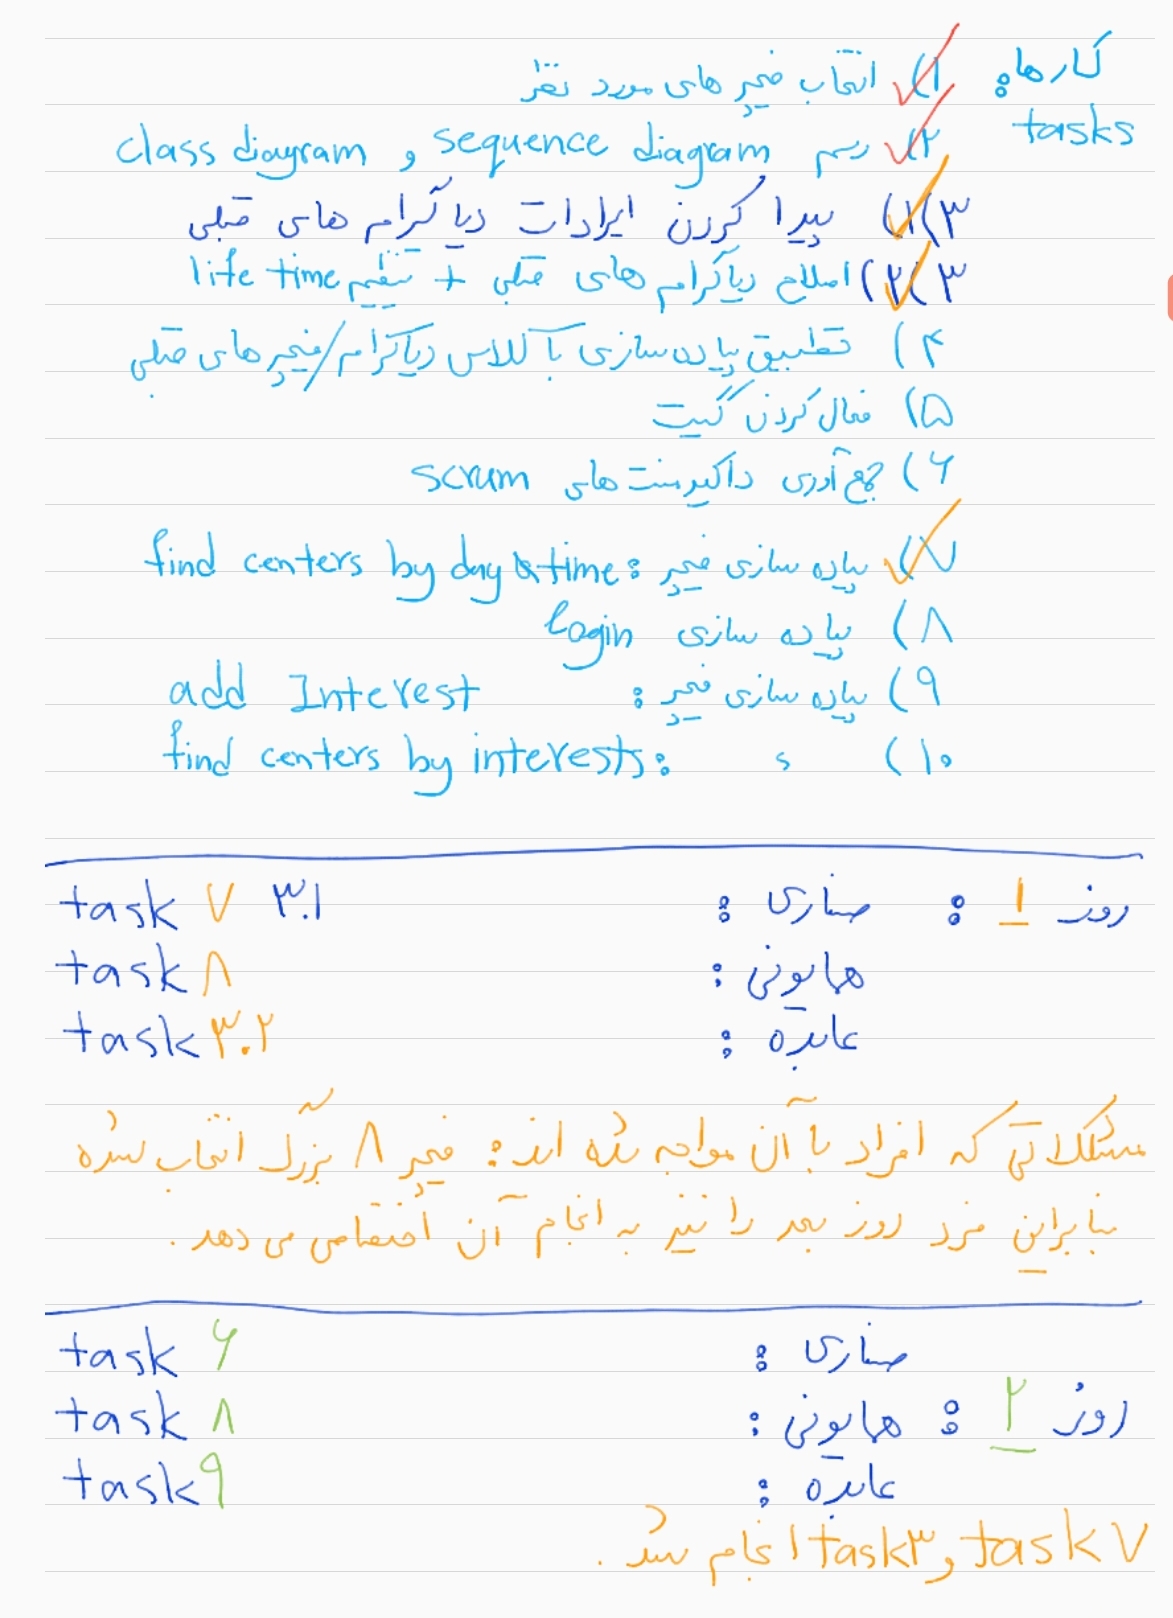 کارها: ۱) انتخاب فیچر های مورد نظر
tasks ۲) رسم sequence diagram و class diagram
۳)۱) پیدا کردن ایرادات دیاگرام های قبلی
۳)۲) اصلاح دیاگرام های قبلی + تنظیم life time
۴) تطبیق پیاده سازی با کلاس دیاگرام/فیچر های قبلی
۵) فعال کردن گیت
۶) جمع آوری داکیومنت های scrum
۷) پیاده سازی فیچر : find centers by day & time
۸) پیاده سازی login
۹) پیاده سازی فیچر : add Interest
۱۰) : find centers by interests
روز ۱ : صفاری : task ۷ ۳.۱
همایونی : task ۸
عابده : task ۳.۲
مشکلاتی که افراد با آن مواجه شده اند : فیچر ۸ بزرگ انتخاب شده
بنابراین فرد روز بعد را نیز به انجام آن اختصاص می دهد .
صفاری : task ۶
روز ۲ : همایونی : task ۸
عابده : task ۹
task ۷ و task ۳ انجام شد .